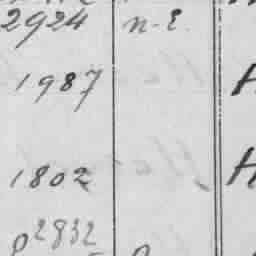 2924 n-E
1987
1802
2832